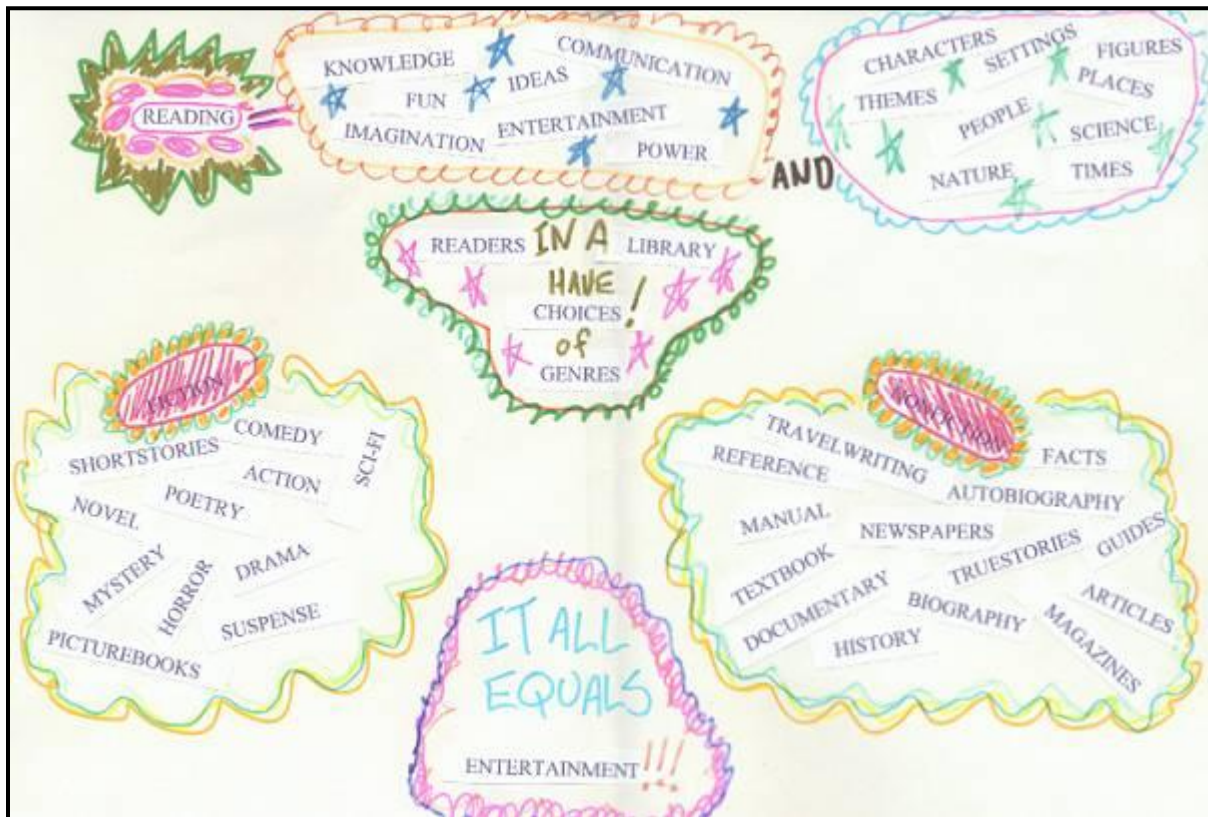 READING
KNOWLEDGE COMMUNICATION
FUN IDEAS
IMAGINATION ENTERTAINMENT
POWER
AND
CHARACTERS SETTINGS FIGURES
THEMES PEOPLE PLACES
SCIENCE
NATURE TIMES
READERS IN A LIBRARY
HAVE
CHOICES!
of
GENRES
FICTION
COMEDY
SHORTSTORIES SCI-FI
ACTION
NOVEL POETRY
MYSTERY HORROR DRAMA
SUSPENSE
PICTUREBOOKS
TRAVELWRITING FACTS
REFERENCE AUTOBIOGRAPHY
MANUAL NEWSPAPERS GUIDES
TEXTBOOK TRUESTORIES
DOCUMENTARY BIOGRAPHY ARTICLES
HISTORY MAGAZINES
IT ALL
EQUALS
ENTERTAINMENT!!!